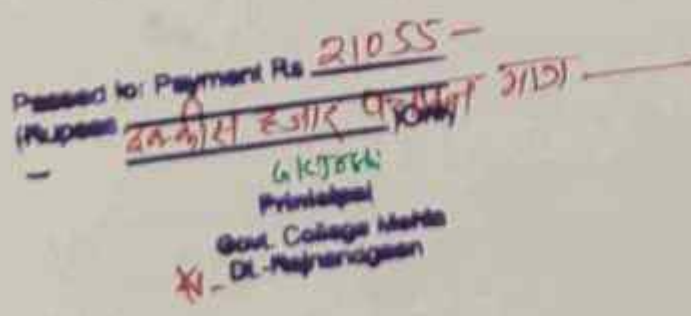 Passed for Payment Rs 21055-
(Rupees इक्कीस हजार पचपन Only) मात्र
GKJoshi
Principal
Govt. College Mohla
Dt.-Rajnandgaon